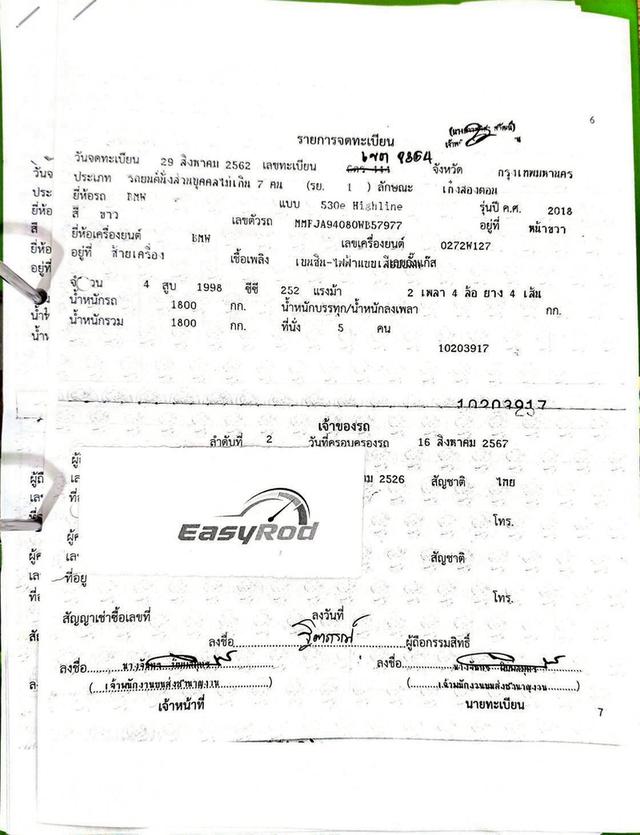 6
รายการจดทะเบียน
เจ้าพ
วันจดทะเบียน 29 สิงหาคม 2562 เลขทะเบียน 9864 จังหวัด กรุงเทพมหานคร
ประเภท รถยนต์นั่งส่วนบุคคลไม่เกิน 7 คน (รย. 1 ) ลักษณะ เก๋งสองตอน
ยี่ห้อรถ BMW แบบ 530e Highline รุ่นปี ค.ศ. 2018
สี ขาว เลขตัวรถ MMFJA94080WB57977 อยู่ที่ หน้าขวา
ยี่ห้อเครื่องยนต์ BMW เลขเครื่องยนต์ 0272W127
อยู่ที่ ซ้ายเครื่อง เชื้อเพลิง เบนซิน-ไฟฟ้าแบบ
จำนวน 4 สูบ 1998 ซีซี 252 แรงม้า 2 เพลา 4 ล้อ ยาง 4 เส้น
น้ำหนักรถ 1800 กก. น้ำหนักบรรทุก/น้ำหนักลงเพลา กก.
น้ำหนักรวม 1800 กก. ที่นั่ง 5 คน
10203917
10203917
เจ้าของรถ
ลำดับที่ 2 วันที่ครอบครองรถ 16 สิงหาคม 2567
2526 สัญชาติ ไทย
EasyRod
โทร.
สัญชาติ
ที่อยู่
โทร.
สัญญาเช่าซื้อเลขที่ ลงวันที่
ลงชื่อ ผู้ถือกรรมสิทธิ์
ลงชื่อ ลงชื่อ
(เจ้าพนักงานขนส่งชำนาญงาน) (เจ้าพนักงานขนส่งชำนาญงาน)
เจ้าหน้าที่ นายทะเบียน
7